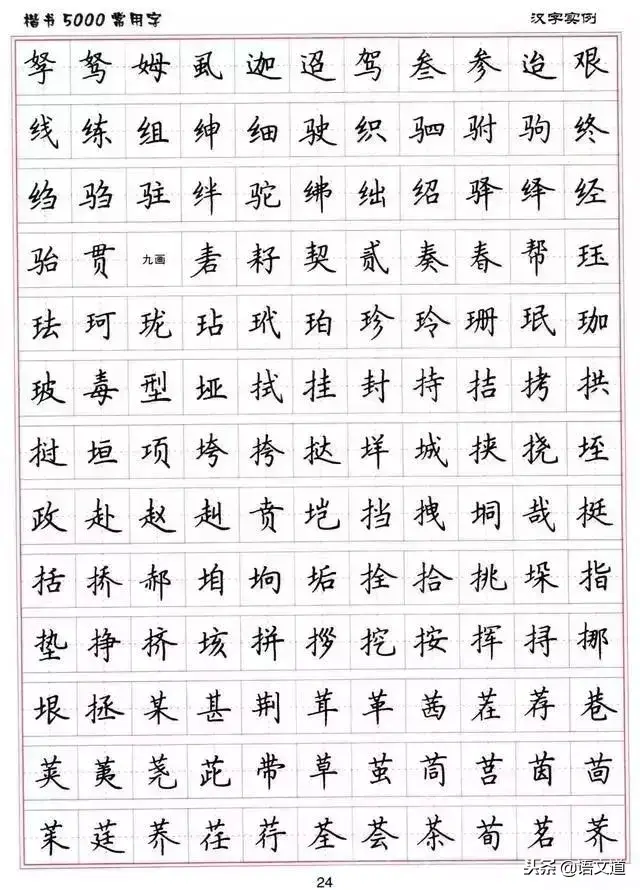 楷书5000常用字 汉字实例
孥驽姆虱迦迢驾叁参迨艰
线练组绅细驶织驷驸驹终
绉驺驻绊驼绋绌绍驿绎经
骀贯九画砉耔契贰奏春帮珏
珐珂珑玷玳珀珍玲珊珉珈
玻毒型垭拭挂封持拮拷拱
挝垣项垮挎挞垟城挟挠垤
政赴赵赳贲垲挡拽垌哉挺
括挢郝垍垧垢拴拾挑垛指
垫挣挤垓拼拶挖按挥挦挪
垠拯某甚荆茸革茜茬荐巷
荚荑荛茈带草茧茼莒茵茴
茱莛荞荏荇荃荟茶荀茗荠
头条@语文道
24